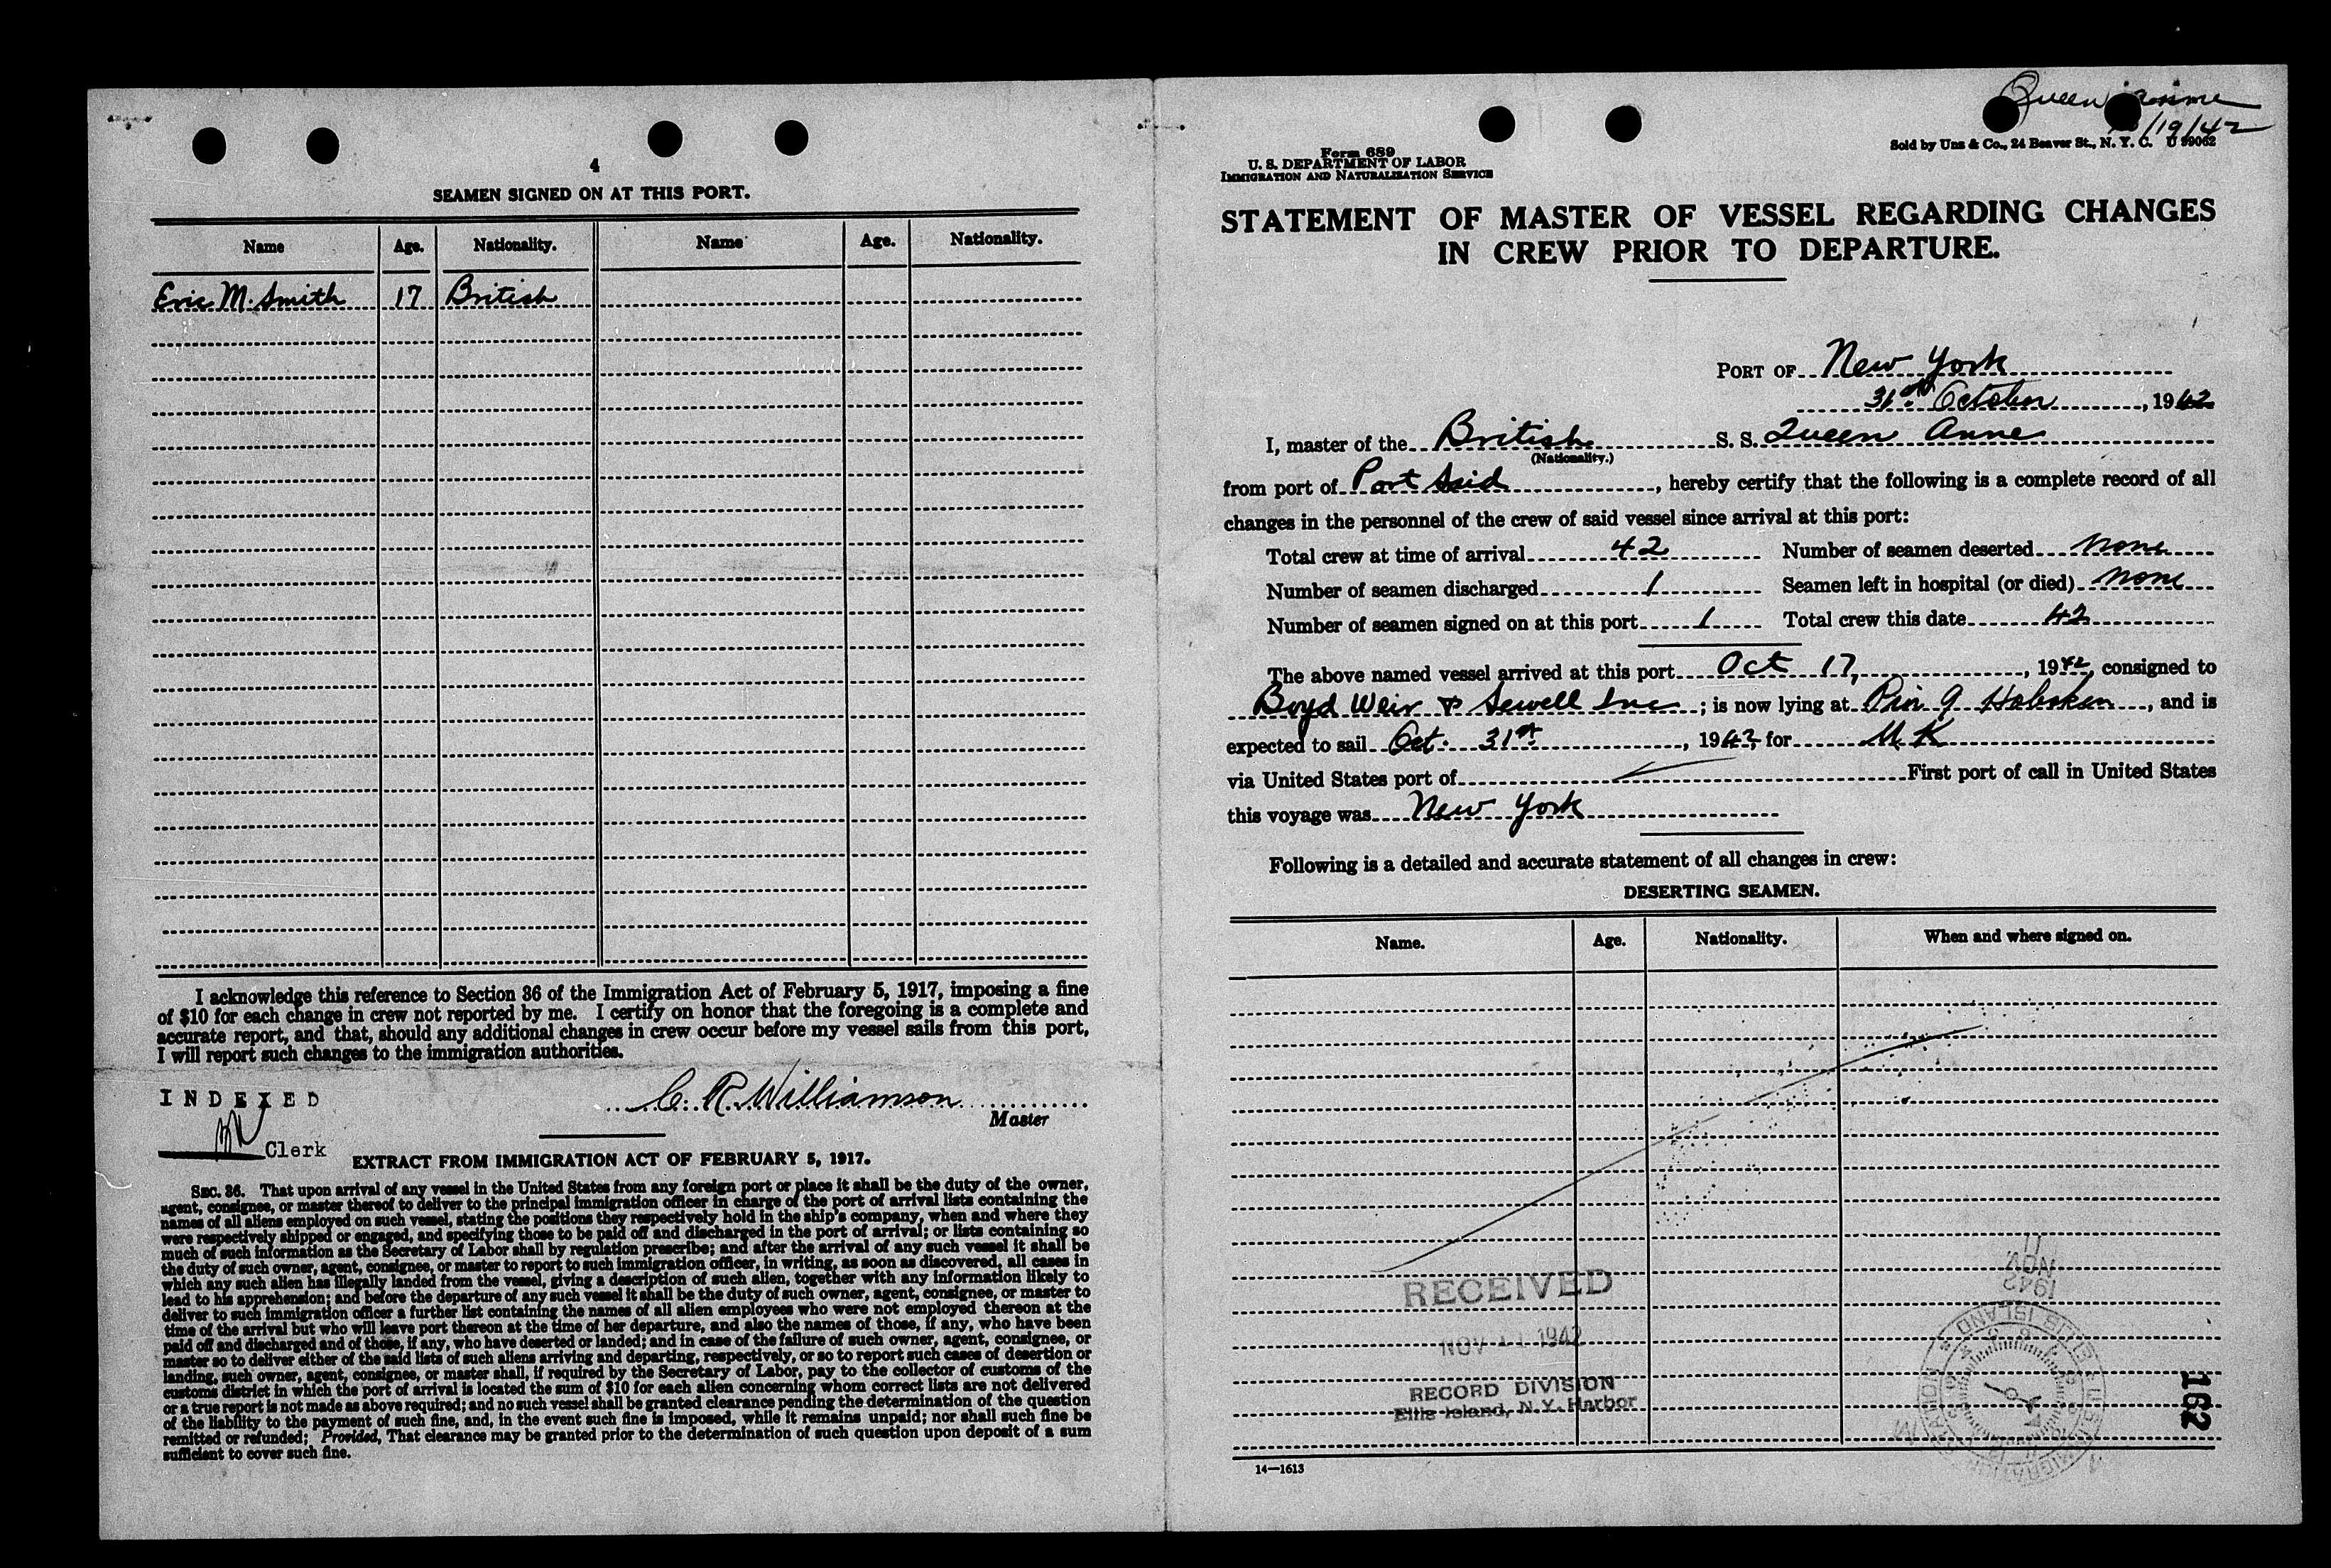 4
SEAMEN SIGNED ON AT THIS PORT.
Name Age. Nationality. Name Age. Nationality.
Eric M. Smith 17 British
I acknowledge this reference to Section 36 of the Immigration Act of February 5, 1917, imposing a fine
of $10 for each change in crew not reported by me. I certify on honor that the foregoing is a complete and
accurate report, and that, should any additional changes in crew occur before my vessel sails from this port,
I will report such changes to the immigration authorities.
INDEXED
C. R. Williamson
Master
Clerk
EXTRACT FROM IMMIGRATION ACT OF FEBRUARY 5, 1917.
SEC. 36. That upon arrival of any vessel in the United States from any foreign port or place it shall be the duty of the owner,
agent, consignee, or master thereof to deliver to the principal immigration officer in charge of the port of arrival lists containing the
names of all aliens employed on such vessel, stating the positions they respectively hold in the ship's company, when and where they
were respectively shipped or engaged, and specifying those to be paid off and discharged in the port of arrival; or lists containing so
much of such information as the Secretary of Labor shall by regulation prescribe; and after the arrival of any such vessel it shall be
the duty of such owner, agent, consignee, or master to report to such immigration officer, in writing, as soon as discovered, all cases in
which any such alien has illegally landed from the vessel, giving a description of such alien, together with any information likely to
lead to his apprehension; and before the departure of any such vessel it shall be the duty of such owner, agent, consignee, or master to
deliver to such immigration officer a further list containing the names of all alien employees who were not employed thereon at the
time of the arrival but who will leave port thereon at the time of her departure, and also the names of those, if any, who have been
paid off and discharged and of those, if any, who have deserted or landed; and in case of the failure of such owner, agent, consignee, or
master so to deliver either of the said lists of such aliens arriving and departing, respectively, or so to report such cases of desertion or
landing, such owner, agent, consignee, or master shall, if required by the Secretary of Labor, pay to the collector of customs of the
customs district in which the port of arrival is located the sum of $10 for each alien concerning whom correct lists are not delivered
or a true report is not made as above required; and no such vessel shall be granted clearance pending the determination of the question
of the liability to the payment of such fine, and, in the event such fine is imposed, while it remains unpaid; nor shall such fine be
remitted or refunded; Provided, That clearance may be granted prior to the determination of such question upon deposit of a sum
sufficient to cover such fine.
Queen Anne
/19/42
Sold by Uns & Co., 24 Beaver St., N. Y. C. U 99062
Form 689
U. S. DEPARTMENT OF LABOR
IMMIGRATION AND NATURALIZATION SERVICE
STATEMENT OF MASTER OF VESSEL REGARDING CHANGES
IN CREW PRIOR TO DEPARTURE.
PORT OF New York
31st October, 1942
I, master of the British S. S. Queen Anne
(Nationality.)
from port of Port Said, hereby certify that the following is a complete record of all
changes in the personnel of the crew of said vessel since arrival at this port:
Total crew at time of arrival 42 Number of seamen deserted None
Number of seamen discharged 1 Seamen left in hospital (or died) None
Number of seamen signed on at this port 1 Total crew this date 42
The above named vessel arrived at this port Oct 17, 1942, consigned to
Boyd Weir & Sewell Inc; is now lying at Pier 9 Hoboken, and is
expected to sail Oct. 31st, 1942, for U.K
via United States port of First port of call in United States
this voyage was New York
Following is a detailed and accurate statement of all changes in crew:
DESERTING SEAMEN.
Name. Age. Nationality. When and where signed on.
RECEIVED
NOV 11 1942
RECORD DIVISION
Ellis Island, N.Y. Harbor
11
NOV
1942
162
14—1613